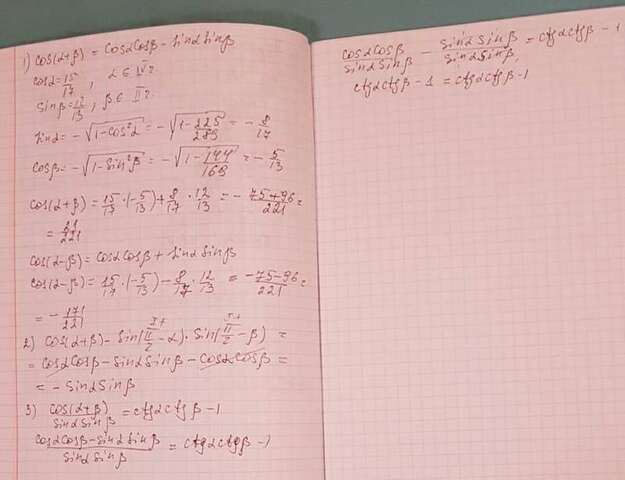 1) cos(α+β) = cosαcosβ - sinαsinβ
cosα = 15/17, α ∈ IV г.
sinβ = 12/13, β ∈ II г.
sinα = -√(1-cos²α) = -√(1-225/289) = -8/17
cosβ = -√(1-sin²β) = -√(1-144/169) = -5/13
cos(α+β) = 15/17·(-5/13)+8/17·12/13 = -75+96/221 =
= 21/221
cos(α-β) = cosαcosβ + sinαsinβ
cos(α-β) = 15/17·(-5/13)-8/17·12/13 = -75-96/221 =
= -171/221
2) cos(α+β)-sin(π/2-α)·sin(π/2-β) =
= cosαcosβ-sinαsinβ-cosαcosβ =
= -sinαsinβ
3) cos(α+β)/sinαsinβ = ctgαctgβ-1
cosαcosβ-sinαsinβ/sinαsinβ = ctgαctgβ-1
cosαcosβ/sinαsinβ - sinαsinβ/sinαsinβ = ctgαctgβ-1
ctgαctgβ-1 = ctgαctgβ-1